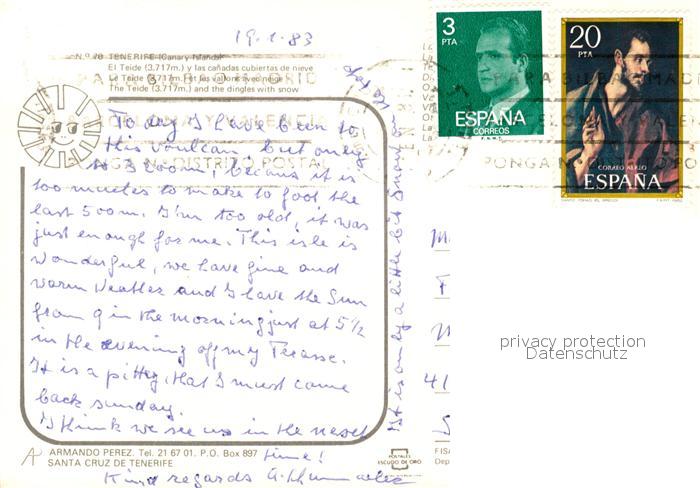 19.1.83
N.º 70 TENERIFE (Canary Islands)
El Teide (3.717m.) y las cañadas cubiertas de nieve
Le Teide (3.717m.) et les vallons avec neige
The Teide (3.717m.) and the dingles with snow
To day I have been to
this voulcan but only
to 3200m, becaus it is
too mucles to make to foot the
last 500m. I'm too old, it was
just enough for me. This isle is
wonderful, we have fine and
warm Weather and I have the Sun
from 9 in the morning just at 5 1/2
in the evening off my Terasse.
It is a pitty, that I must come
back sunday.
I think we see us in the next
time!
Kind regards
It is only a little bit Snow on
ARMANDO PEREZ. Tel. 21 67 01. P.O. Box 897
SANTA CRUZ DE TENERIFE
POSTALES
ESCUDO DE ORO
FISA
Dep
3
PTA
ESPAÑA
CORREOS
F.N.M.T.
20
PTA
CORREO AEREO
ESPAÑA
PARA BILBAO MADRID
VALENCIA
PONGA Nº DISTRITO POSTAL
41
privacy protection
Datenschutz